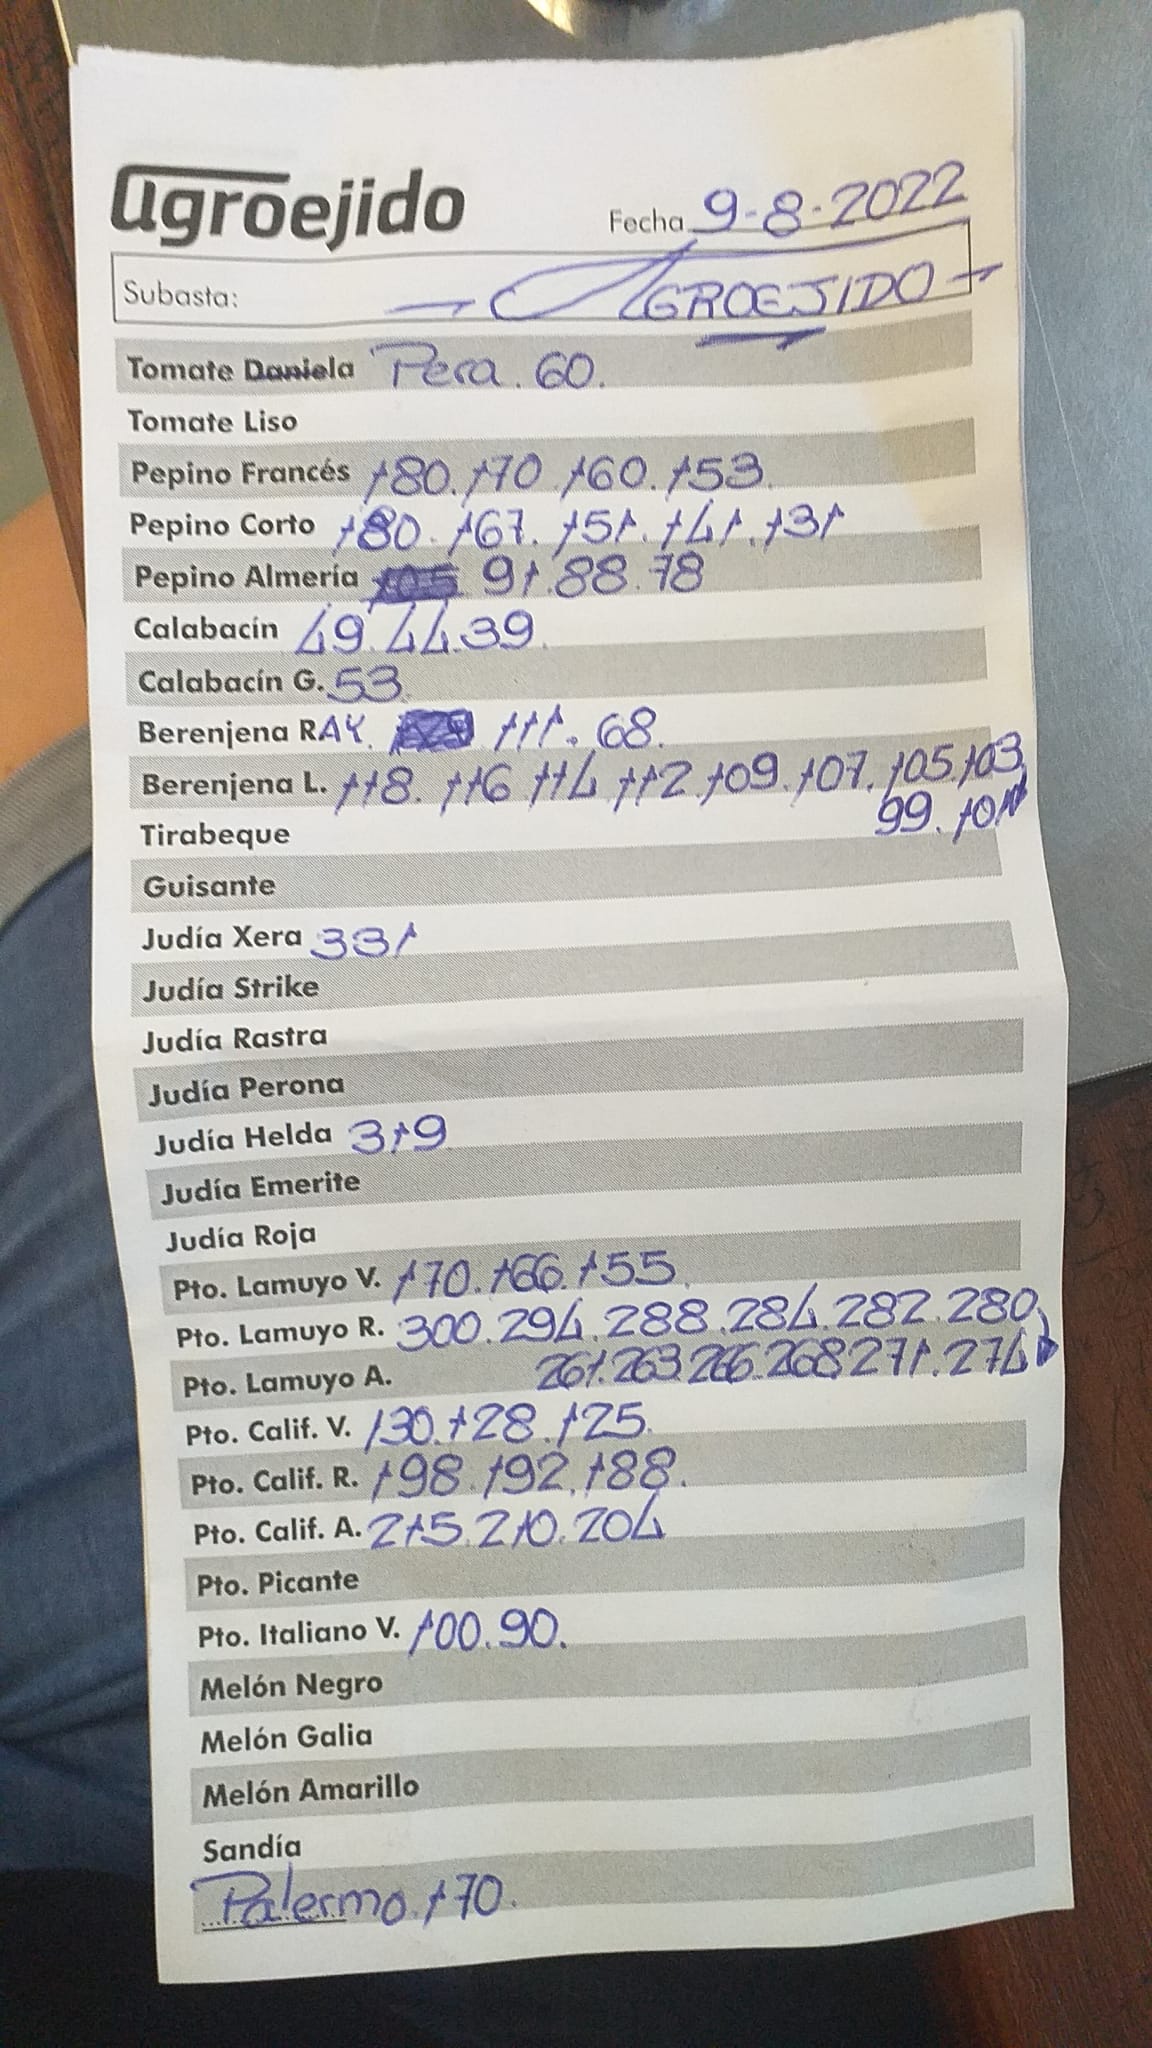 agroejido Fecha 9-8-2022
Subasta: - AGROEJIDO -
Tomate Daniela Pera. 60.
Tomate Liso
Pepino Francés 180. 170. 160. 153.
Pepino Corto 180. 167. 151. 141. 131
Pepino Almería 91. 88. 78
Calabacín 49. 44. 39.
Calabacín G. 53.
Berenjena RAY. 111. 68.
Berenjena L. 118. 116. 114. 112. 109. 107. 105. 103.
99. 101
Tirabeque
Guisante
Judía Xera 331
Judía Strike
Judía Rastra
Judía Perona
Judía Helda 319
Judía Emerite
Judía Roja
Pto. Lamuyo V. 170. 166. 155.
Pto. Lamuyo R. 300. 294. 288. 284. 282. 280,
Pto. Lamuyo A. 261. 263. 266. 268 271. 274
Pto. Calif. V. 130. 128. 125.
Pto. Calif. R. 198. 192. 188.
Pto. Calif. A. 215. 210. 204
Pto. Picante
Pto. Italiano V. 100. 90.
Melón Negro
Melón Galia
Melón Amarillo
Sandía
Palermo. 170.